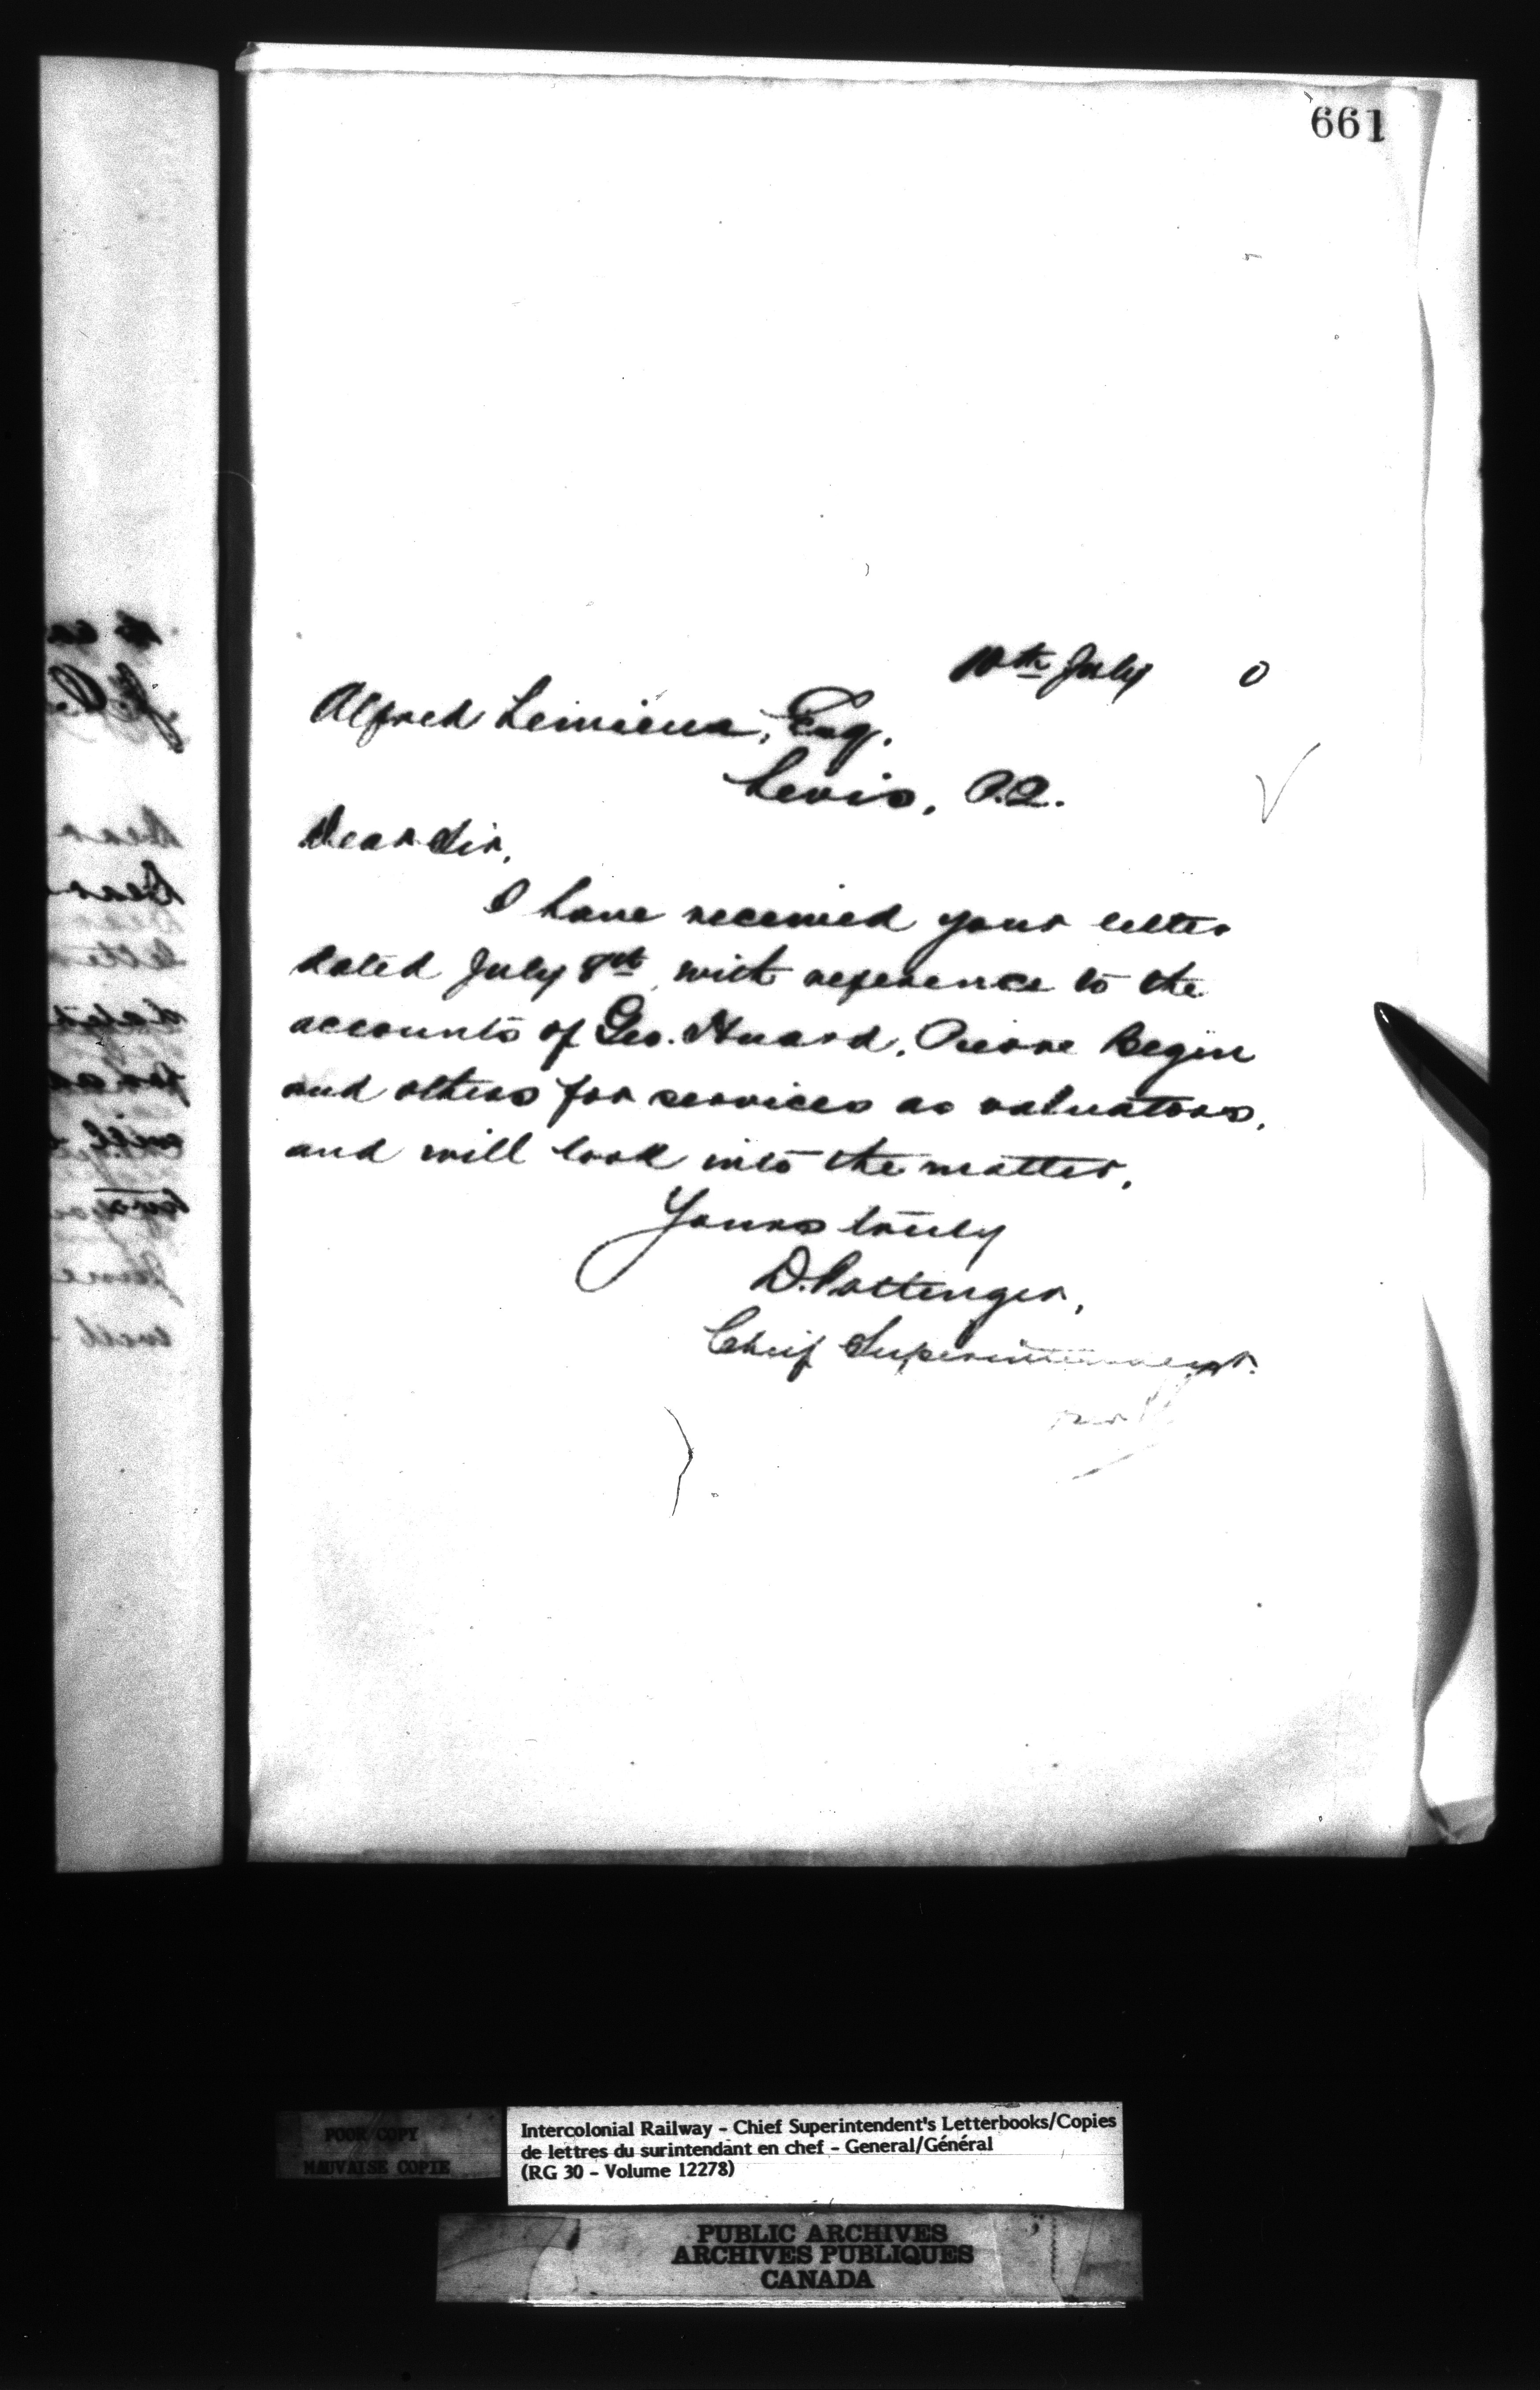 661
10th July 0
Alfred Lemieux, Esq.
Levis, P.Q.
Dear Sir,
I have received your letter
dated July 8th, with reference to the
accounts of Geo. Huard, Pierre Begin
and others for services as valuators,
and will look into the matter.
Yours truly
D. Pottinger,
Chief Superintendent.
POOR COPY
MAUVAISE COPIE
Intercolonial Railway - Chief Superintendent's Letterbooks/Copies
de lettres du surintendant en chef - General/Général
(RG 30 - Volume 12278)
PUBLIC ARCHIVES
ARCHIVES PUBLIQUES
CANADA